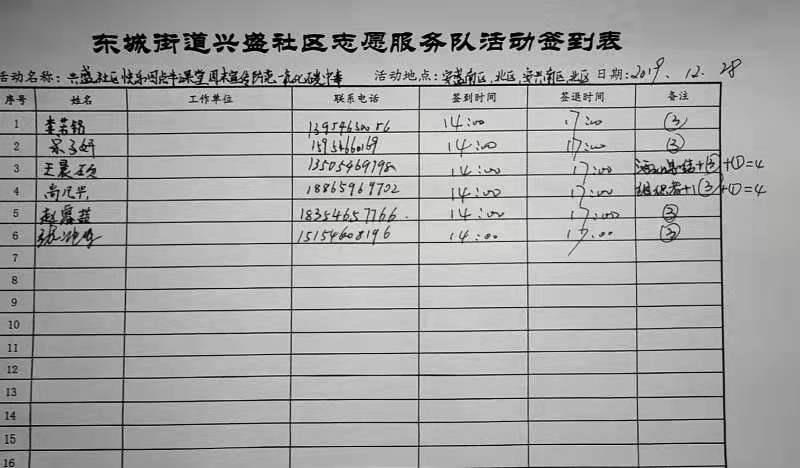 东城街道兴盛社区志愿服务队活动签到表
活动名称: 兴盛社区快乐周末课堂周末宣传防范一氧化碳中毒 活动地点: 安兴南区, 北区 日期: 2019. 12. 28
序号 姓名 工作单位 联系电话 签到时间 签退时间 备注
1 李若铭 14:00 17:00 ③
2 14:00 17:00 ③
3 王晨 13505469798 14:00 17:00 ③+①=4
4 尚凡华 18865969702 14:00 17:00 组织者+1 ③+①=4
5 赵露 18354657766 14:00 17:00 ③
6 张 15154608196 14:00 17:00 ③
7
8
9
10
11
12
13
14
15
16